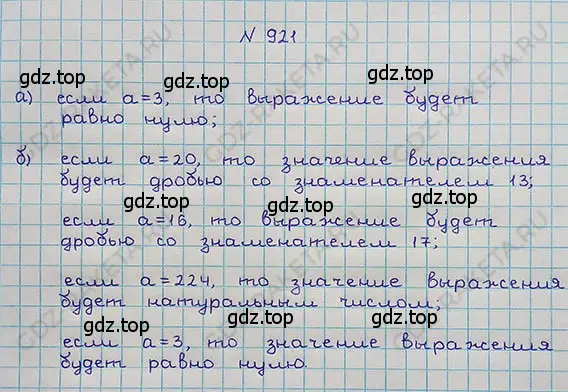 N 921
gdz.top gdz.top
а) если a=3, то выражение будет
равно нулю;
gdz.top gdz.top
б) если a=20, то значение выражения
будет дробью со знаменателем 13;
gdz.top gdz.top
если a=16, то выражение будет
дробью со знаменателем 17;
gdz.top gdz.top
если a=224, то значение выражения
будет натуральным числом;
gdz.top gdz.top
если a=3, то значение выражения
будет равно нулю.
gdz.top gdz.top
GDZ-RAKETA.RU